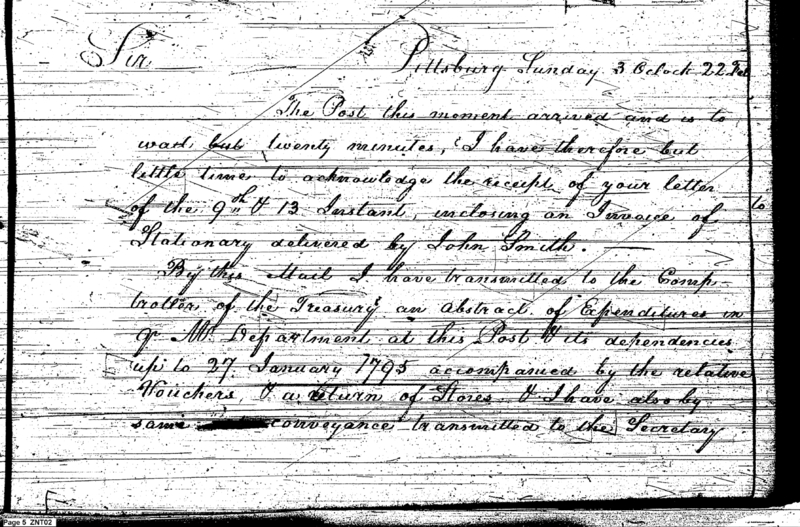 Sir
Pittsburg Sunday 3 Oclock 22 Feb
The Post this moment arrived and is to
wait but twenty minutes, I have therefore but
little time to acknowledge the receipt of your letter
of the 9th & 13 Instant, inclosing an Invoice of
Stationary delivered by John Smith.
By this Mail I have transmitted to the Comp
troller of the Treasury an Abstract of Expenditures in
Q Mr Department at this Post & its dependencies
up to 27 January 1795 accompanied by the relative
Vouchers, & a return of Stores & I have also by
same conveyance transmitted to the Secretary
to
Page 5 ZNT02